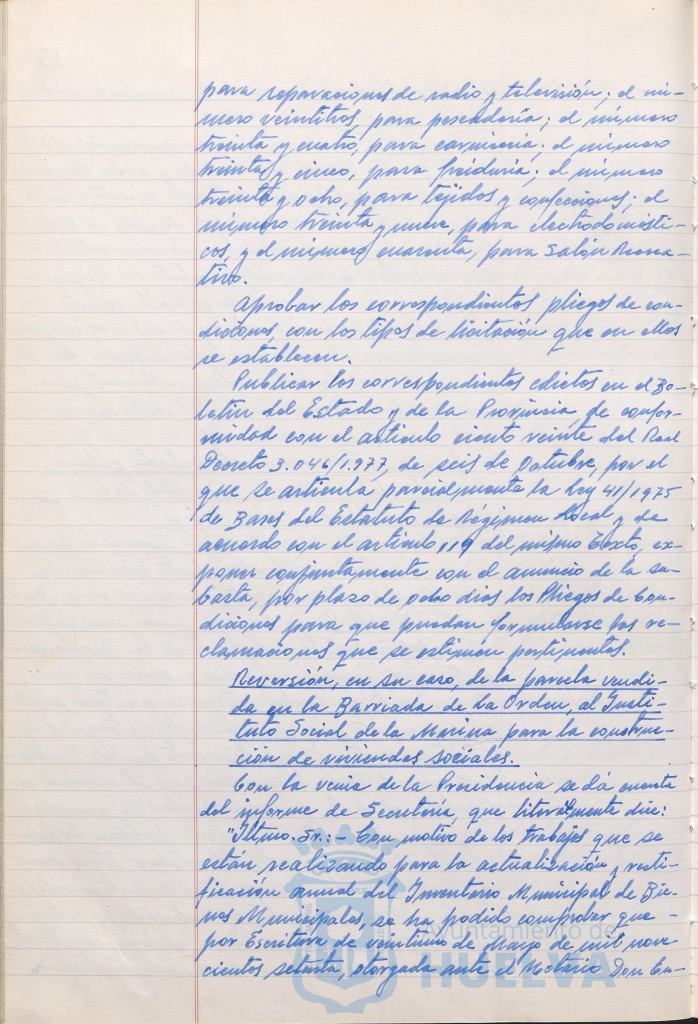 para reparaciones de radio y televisión; el nú-
mero veintitres, para pescadería; el número
treinta y cuatro, para carnicería; el número
treinta y cinco, para freiduría; el número
treinta y ocho, para tejidos y confecciones; el
número treinta y nueve, para electrodomésti-
cos, y el número cuarenta, para Salón Recrea-
tivo.
Aprobar los correspondientes pliegos de con-
diciones, con los tipos de licitación que en ellos
se establecen.
Publicar los correspondientes edictos en el Bo-
letín del Estado y de la Provincia, de confor-
midad con el artículo ciento veinte del Real
Decreto 3.046/1.977, de seis de Octubre, por el
que se articula parcialmente la Ley 41/1975
de Bases del Estatuto de Régimen Local y de
acuerdo con el artículo 119 del mismo Texto, ex-
poner conjuntamente con el anuncio de la su-
basta, por plazo de ocho días los Pliegos de Con-
diciones para que puedan formularse las re-
clamaciones que se estimen pertinentes.
Reversión, en su caso, de la parcela vendi-
da en la Barriada de La Orden, al Insti-
tuto Social de la Marina para la construc-
ción de viviendas sociales.
Con la venia de la Presidencia se dá cuenta
del informe de Secretaría, que literalmente dice:
"Iltmo. Sr.:- Con motivo de los trabajos que se
están realizando para la actualización y recti-
ficación anual del Inventario Municipal de Bie-
nes Municipales, se ha podido comprobar que
por Escritura de veintiuno de Mayo de mil nove-
cientos setenta, otorgada ante el Notario Don En-
Ayuntamiento de
HUELVA